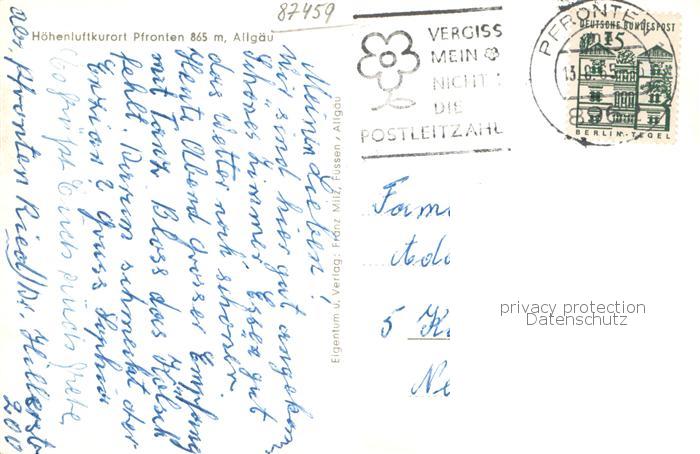 87459
Höhenluftkurort Pfronten 865 m, Allgäu
VERGISS
MEIN
NICHT
DIE
POSTLEITZAHL
PFRONTEN
DEUTSCHE BUNDESPOST
15
BERLIN-TEGEL
Meine Lieben!
Wir sind hier gut angekom
Schönes Zimmer Essen gut
das Wetter noch schöner.
Heute Abend grosser Empfang
mit Tanz Bloss das Kölsch
fehlt. Darum schmeckt der
Enzian? Gruss Sophia
grüßt Euch auch Grete
abs. Pfronten Ried/Dr. Hillerstr
200
Eigentum u. Verlag: Franz Milz, Füssen - Allgäu
Fam
5 K
Ne
privacy protection
Datenschutz